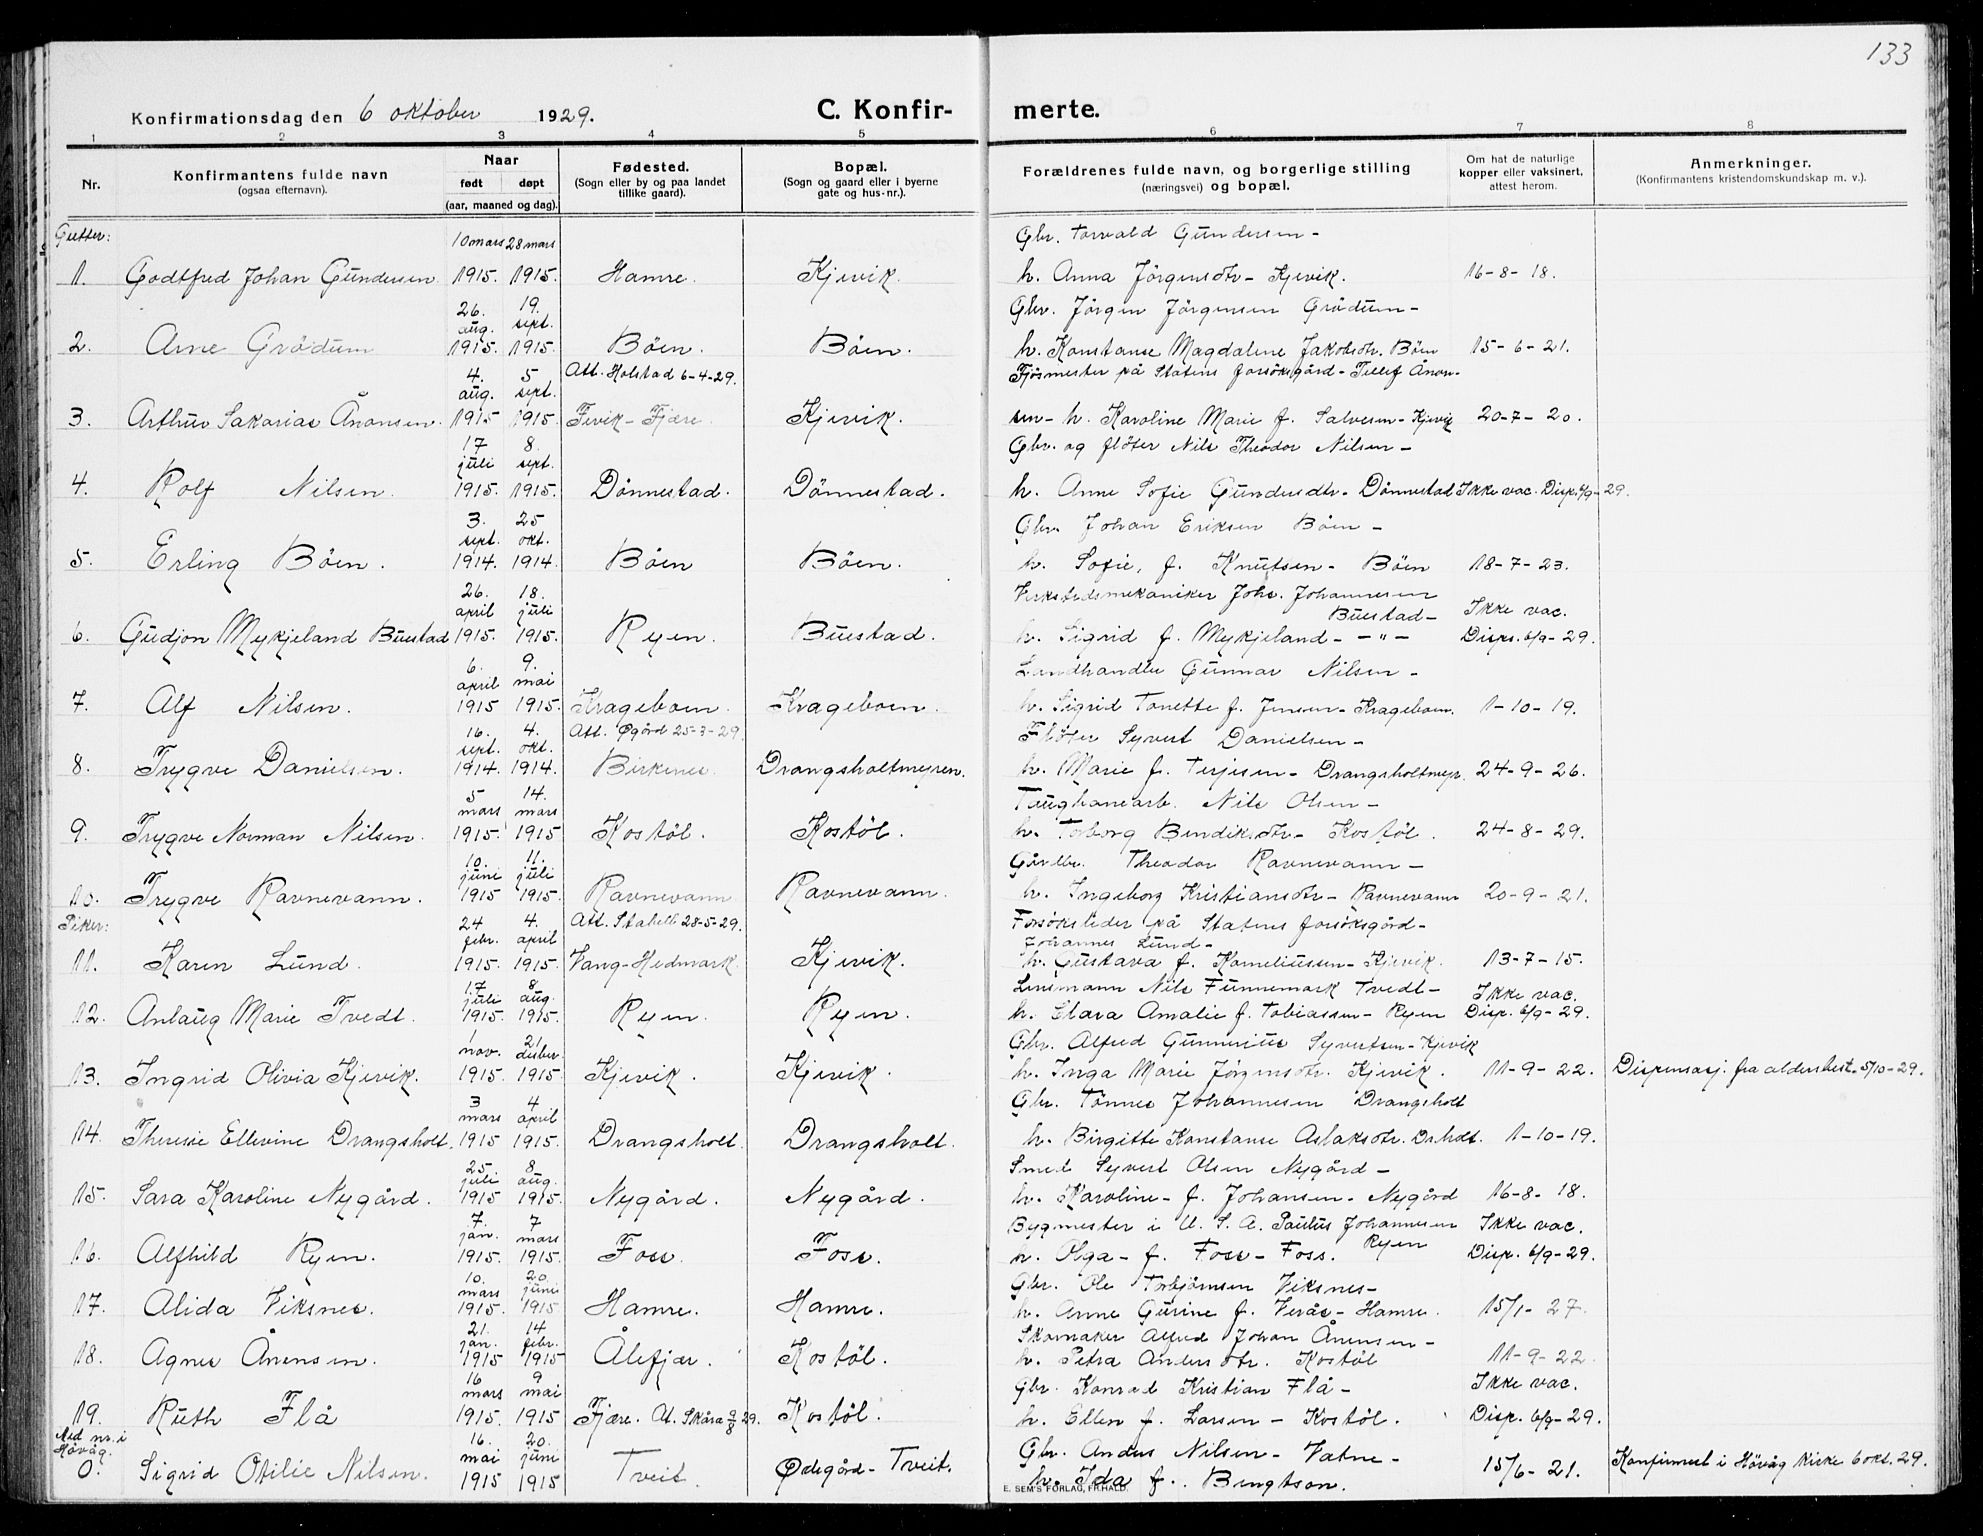 133
Konfirmationsdag den 6 oktober 1929. C. Konfir- merte.
1 2 3 4 5 6 7 8
Nr. Konfirmantens fulde navn (ogsaa efternavn). Naar født døpt (aar, maaned og dag). Fødested. (Sogn eller by og paa landet tillike gaard). Bopæl. (Sogn og gaard eller i byerne gate og hus-nr.). Forældrenes fulde navn, og borgerlige stilling (næringsvei) og bopæl. Om hat de naturlige kopper eller vaksinert, attest herom. Anmerkninger. (Konfirmantens kristendomskundskap m. v.).
Gutter: 10 mars 28 mars Gbr. Torvald Gundersen -
1. Godtfred Johan Gundersen 1915. 1915. Hamre. Kjevik. h. Anna Jörgensdtr - Kjevik. 16-8-18.
26. aug. 19. sept. Gbr. Jörgen Jörgensen Grödum -
2. Arne Grödum 1915. 1915. Böen. Böen. h. Konstanse Magdalene Jakobsdtr. Böen 15-6-21.
4. aug. 5 sept. Att. Holstad 6-4-29. Fjösmester på Statens forsöksgård - Tellef Ånon-
3. Arthur Sakarias Ånonsen. 1915 1915. Fevik - Fjære Kjevik. sen - h. Karoline Marie f. Salvesen - Kjevik 20-7-20.
17 juli 8. sept. Gbr. og flöter Nils Theodor Nilsen -
4. Rolf Nilsen. 1915. 1915. Dönnestad. Dönnestad. h. Anne Sofie Gundersdtr - Dönnestad Ikke vac. Disp. 6/9-29.
3. sept. 25 okt. Gbr. Johan Eriksen Böen -
5. Erling Böen. 1914. 1914. Böen Böen. h. Sofie, f. Knutsen - Böen 18-7-23.
26. april 18. juli Verkstedsmekaniker Johs. Johannesen Buestad - Ikke vac.
6. Gudjon Mykjeland Buestad 1915. 1915. Ryen. Buestad. h. Sigrid f. Mykjeland - - " - Disps. 6/9-29.
6. april 9. mai Landhandler Gunnar Nilsen -
7. Alf Nilsen. 1915 1915. Krageboen. Krageboen. h. Sigrid Tonette f. Jensen - Krageboen. 1-10-19.
16. sept. 4. okt. Att. Øgård 25-3-29. Flöter Syvert Danielsen -
8. Trygve Danielsen. 1914. 1914. Birkenes. Drangsholtmyren. h. Marie f. Terjesen - Drangsholtmyr. 24-9-26.
5 mars 14. mars Taugbanearb. Nils Olsen -
9. Trygve Norman Nilsen. 1915. 1915 Kostöl. Kostöl. h. Torborg Bendiksdtr - Kostöl. 24-8-29.
10. juni 11. juli Gårdbr. Theodor Ravnevann -
10. Trygve Ravnevann. 1915 1915. Ravnevann Ravnevann. h. Ingeborg Kristiansdtr - Ravnevann 20-9-21.
Piker: 24 febr. 4. april Att. Stabell 28-5-29. Forsöksleder på Statens forsöksgård - Johannes Lund -
11. Karen Lund. 1915. 1915. Vang-Hedmark. Kjevik. h. Gustava f. Korneliussen - Kjevik. 13-7-15.
17 juli 8 aug. Lensmann Nils Funnemark Tvedt - Ikke vac.
12. Anlaug Marie Tvedt. 1915. 1915. Ryen. Ryen. h. Clara Amalie f. Tobiassen - Ryen Disp. 6/9-29.
1 nov. 21 desbr. Gbr. Alfred Gunnerius Syvertsen - Kjevik
13. Ingrid Olivia Kjevik. 1915. 1915. Kjevik. Kjevik. h. Inga Marie Jörgensdtr. Kjevik. 11-9-22. Dispensasj. fra aldersbest. 5/10-29.
3 mars 4 april Gbr. Tönnes Johannesen Drangsholt
14. Theresie Ellevine Drangsholt. 1915 1915. Drangsholt. Drangsholt. h. Birgitte Konstanse Aslaksdtr. Drholt. 1-10-19.
25 juli 8 aug. Smed Syvert Olsen Nygård -
15. Sara Karoline Nygård. 1915 1915. Nygård. Nygård. h. Karoline - f. Johansen - Nygård 16-8-18.
7. jan. 7 mars Bygmester i U. S. A. Paulus Johannesen Ryen Ikke vac.
16. Alfhild Ryen. 1915. 1915. Foss. Foss. h. Olga - f. Foss - Foss. Disp. 6/9-29.
10. mars 20. juni Gbr. Ole Torbjörnsen Viksnes -
17. Alida Viksnes. 1915. 1915 Hamre. Hamre. h. Anne Gurine f. Verås - Hamre. 15/1-27.
21. jan. 14 febr. Skomaker Alfred Johan Ånensen -
18. Agnes Ånensen. 1915 1915 Ålefjær. Kostöl. h. Petra Andersdtr. Kostöl 11-9-22.
16 mars 9 mai Gbr. Konrad Kristian Flå - Ikke vac.
19. Ruth Flå 1915. 1915 Fjære. At. Skåra 9/8 29. Kostöl. h. Ellen f. Larsen - Kostöl. Disp. 6/9-29.
Med nr. i Hövåg. 16. mai 20. juni Gbr. Anders Nilsen - Vatne -
0. Sigrid Otilie Nilsen. 1915 1915 Tveit Ødegård - Tveit. h. Ida f. Bengtson. 15/6-21. Konfirmert i Hövåg kirke 6 okt. 29.
E. SEM'S FORLAG, FR.HALD.